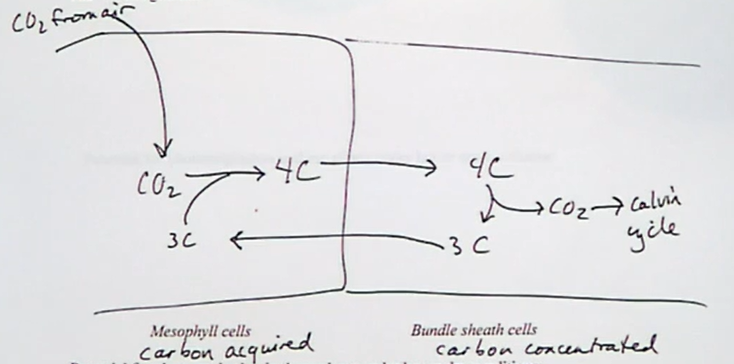 CO2 from air
CO2 → 4C → 4C
→ CO2 → Calvin cycle
3C ← 3C
Mesophyll cells
carbon acquired
Bundle sheath cells
carbon concentrated